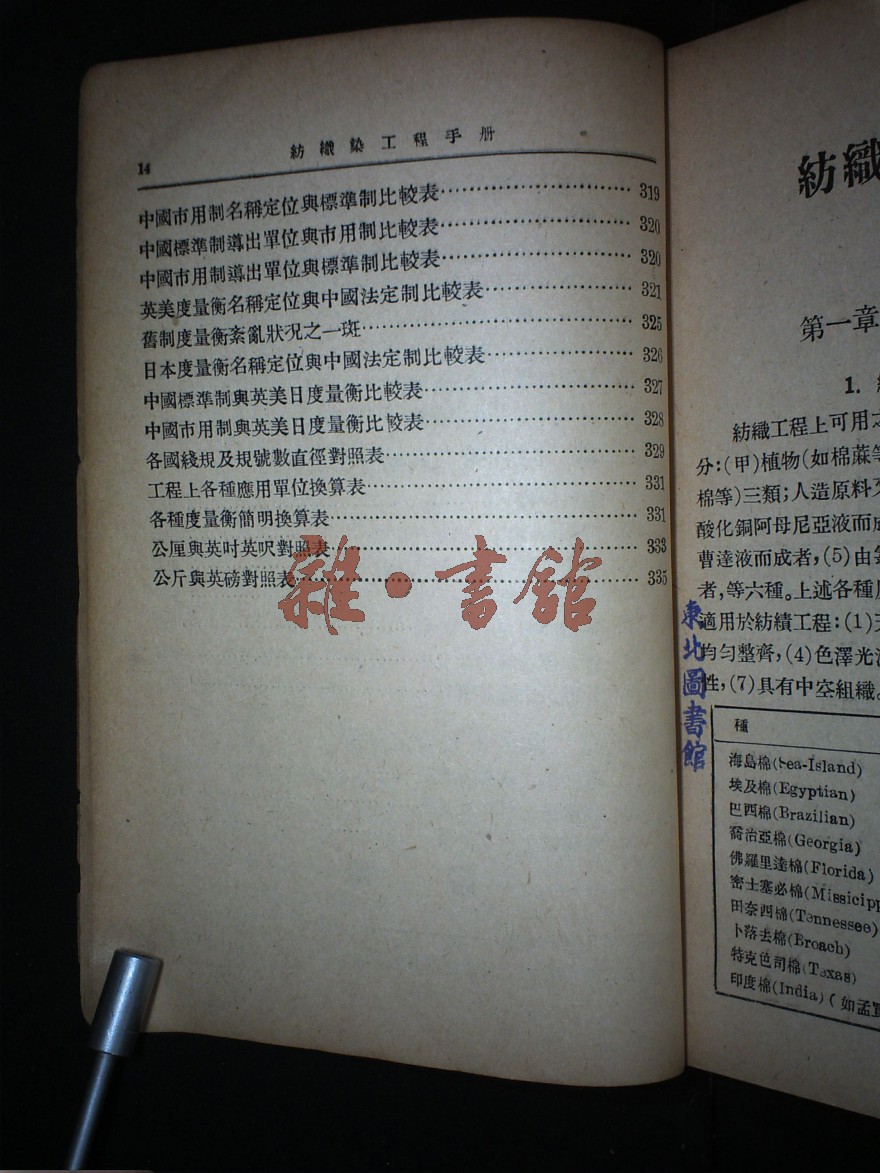 14
紡織染工程手册
中國市用制名稱定位與標準制比較表 319
中國標準制導出單位與市用制比較表 320
中國市用制導出單位與標準制比較表 320
英美度量衡名稱定位與中國法定制比較表 321
舊制度量衡紊亂狀况之一斑 325
日本度量衡名稱定位與中國法定制比較表 326
中國標準制與英美日度量衡比較表 327
中國市用制與英美日度量衡比較表 328
各國綫規及規號數直徑對照表 329
工程上各種應用單位換算表 331
各種度量衡簡明換算表 331
公厘與英吋英呎對照表 333
公斤與英磅對照表 335
雜·書館
紡織
第一章
1.
紡織工程上可用之
分:(甲)植物(如棉蔴等
棉等)三類;人造原料又
酸化銅阿母尼亞液而成
曹達液而成者,(5)由
者,等六種。上述各種
適用於紡績工程:(1)
均匀整齊,(4)色澤光
性,(7)具有中空組織。
東北圖書館
種
海島棉(Sea-Island)
埃及棉(Egyptian)
巴西棉(Brazilian)
喬治亞棉(Georgia)
佛羅里達棉(Florida)
密士塞必棉(Missicipp
田奈西棉(Tennessee)
卜落去棉(Broach)
特克色司棉(Texas)
印度棉(India)(如孟買